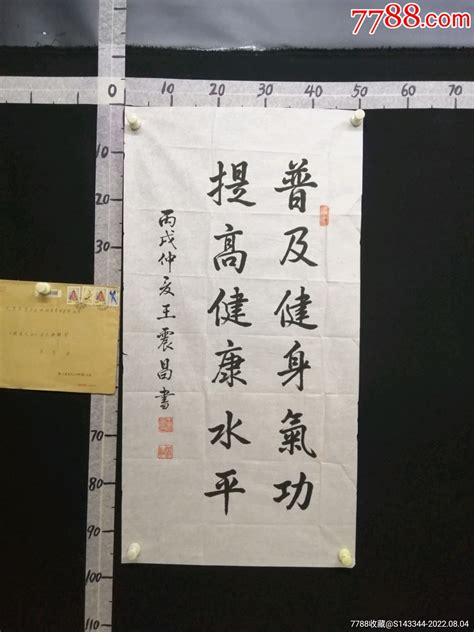 7788.com
0 10 20 30 40 50 60 70
10
20
30
70
80
90
100
110
普及健身氣功
提高健康水平
丙戌仲夏王震昌書
7788收藏@S143344-2022.08.04